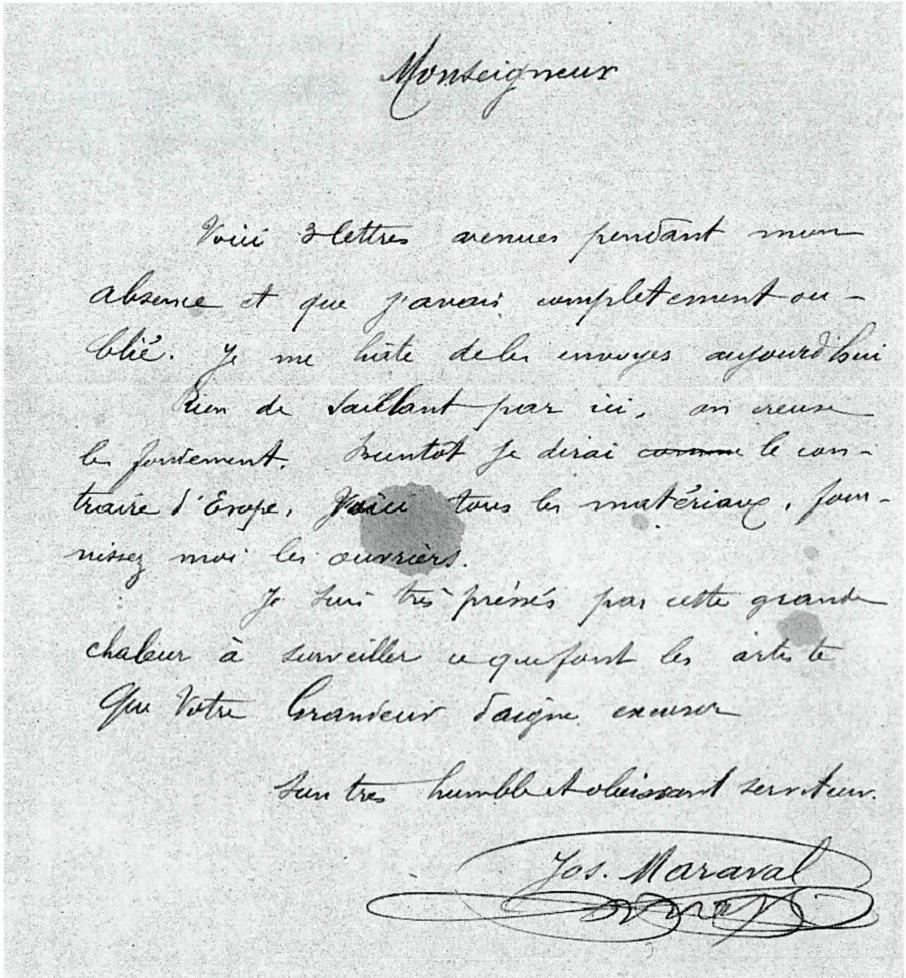 Monseigneur
Voici 3 lettres avenues pendant mon
absence et que j'avais complètement ou-
blié. Je me hâte de les envoyer aujourd'hui
Rien de saillant par ici, on creuse
les fondement. Bientôt je dirai comme le con-
traire d'Esope, Voici tous les matériaux, four-
nissez moi les ouvriers.
Je suis très préssés par cette grande
chaleur à surveiller ce que font les artiste
Que Votre Grandeur daigne excuser
Son tres humble et obeissant serviteur.
Jos. Maraval